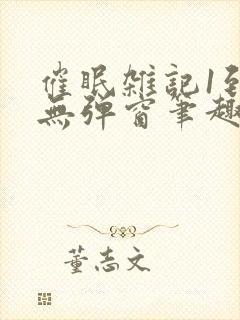 催眠雑記1到
無弾窗筆趣
董志文